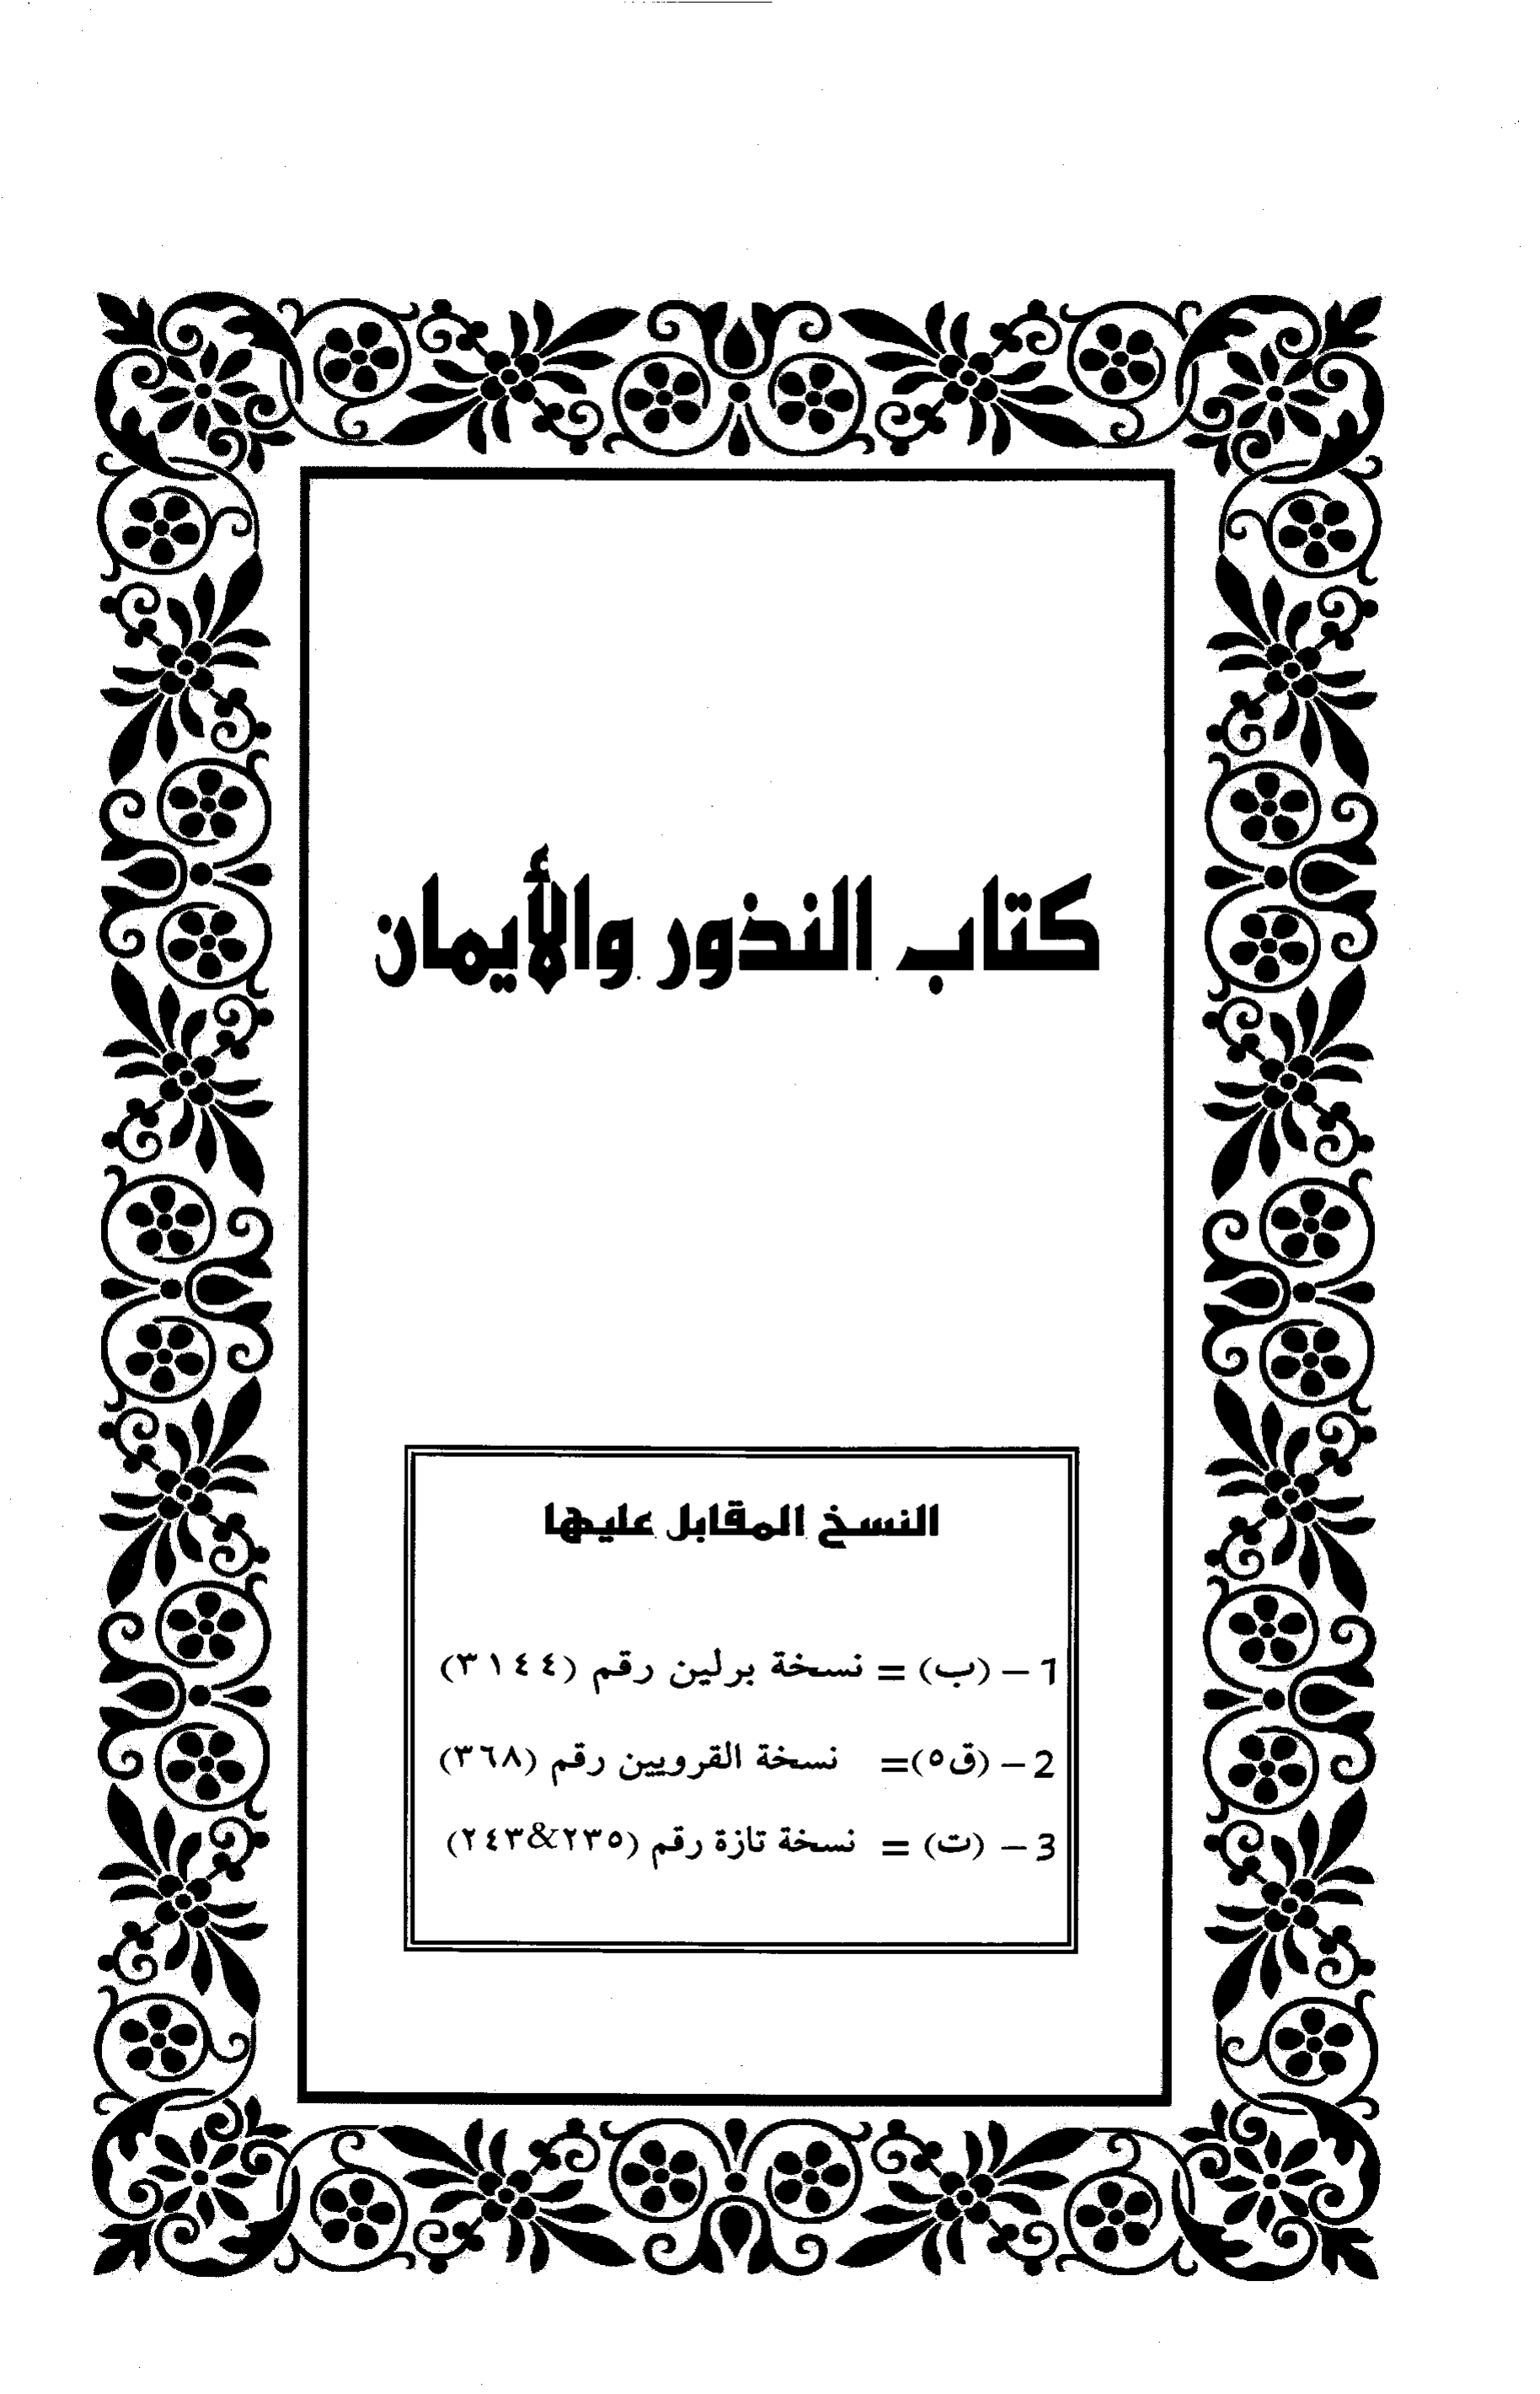 كتاب النذور والأيمان
النسخ المقابل عليها
1 – (ب) = نسخة برلين رقم (٣١٤٤)
2 – (ق٥)= نسخة القرويين رقم (٣٦٨)
3 – (ت) = نسخة تازة رقم (٢٣٥&٢٤٣)